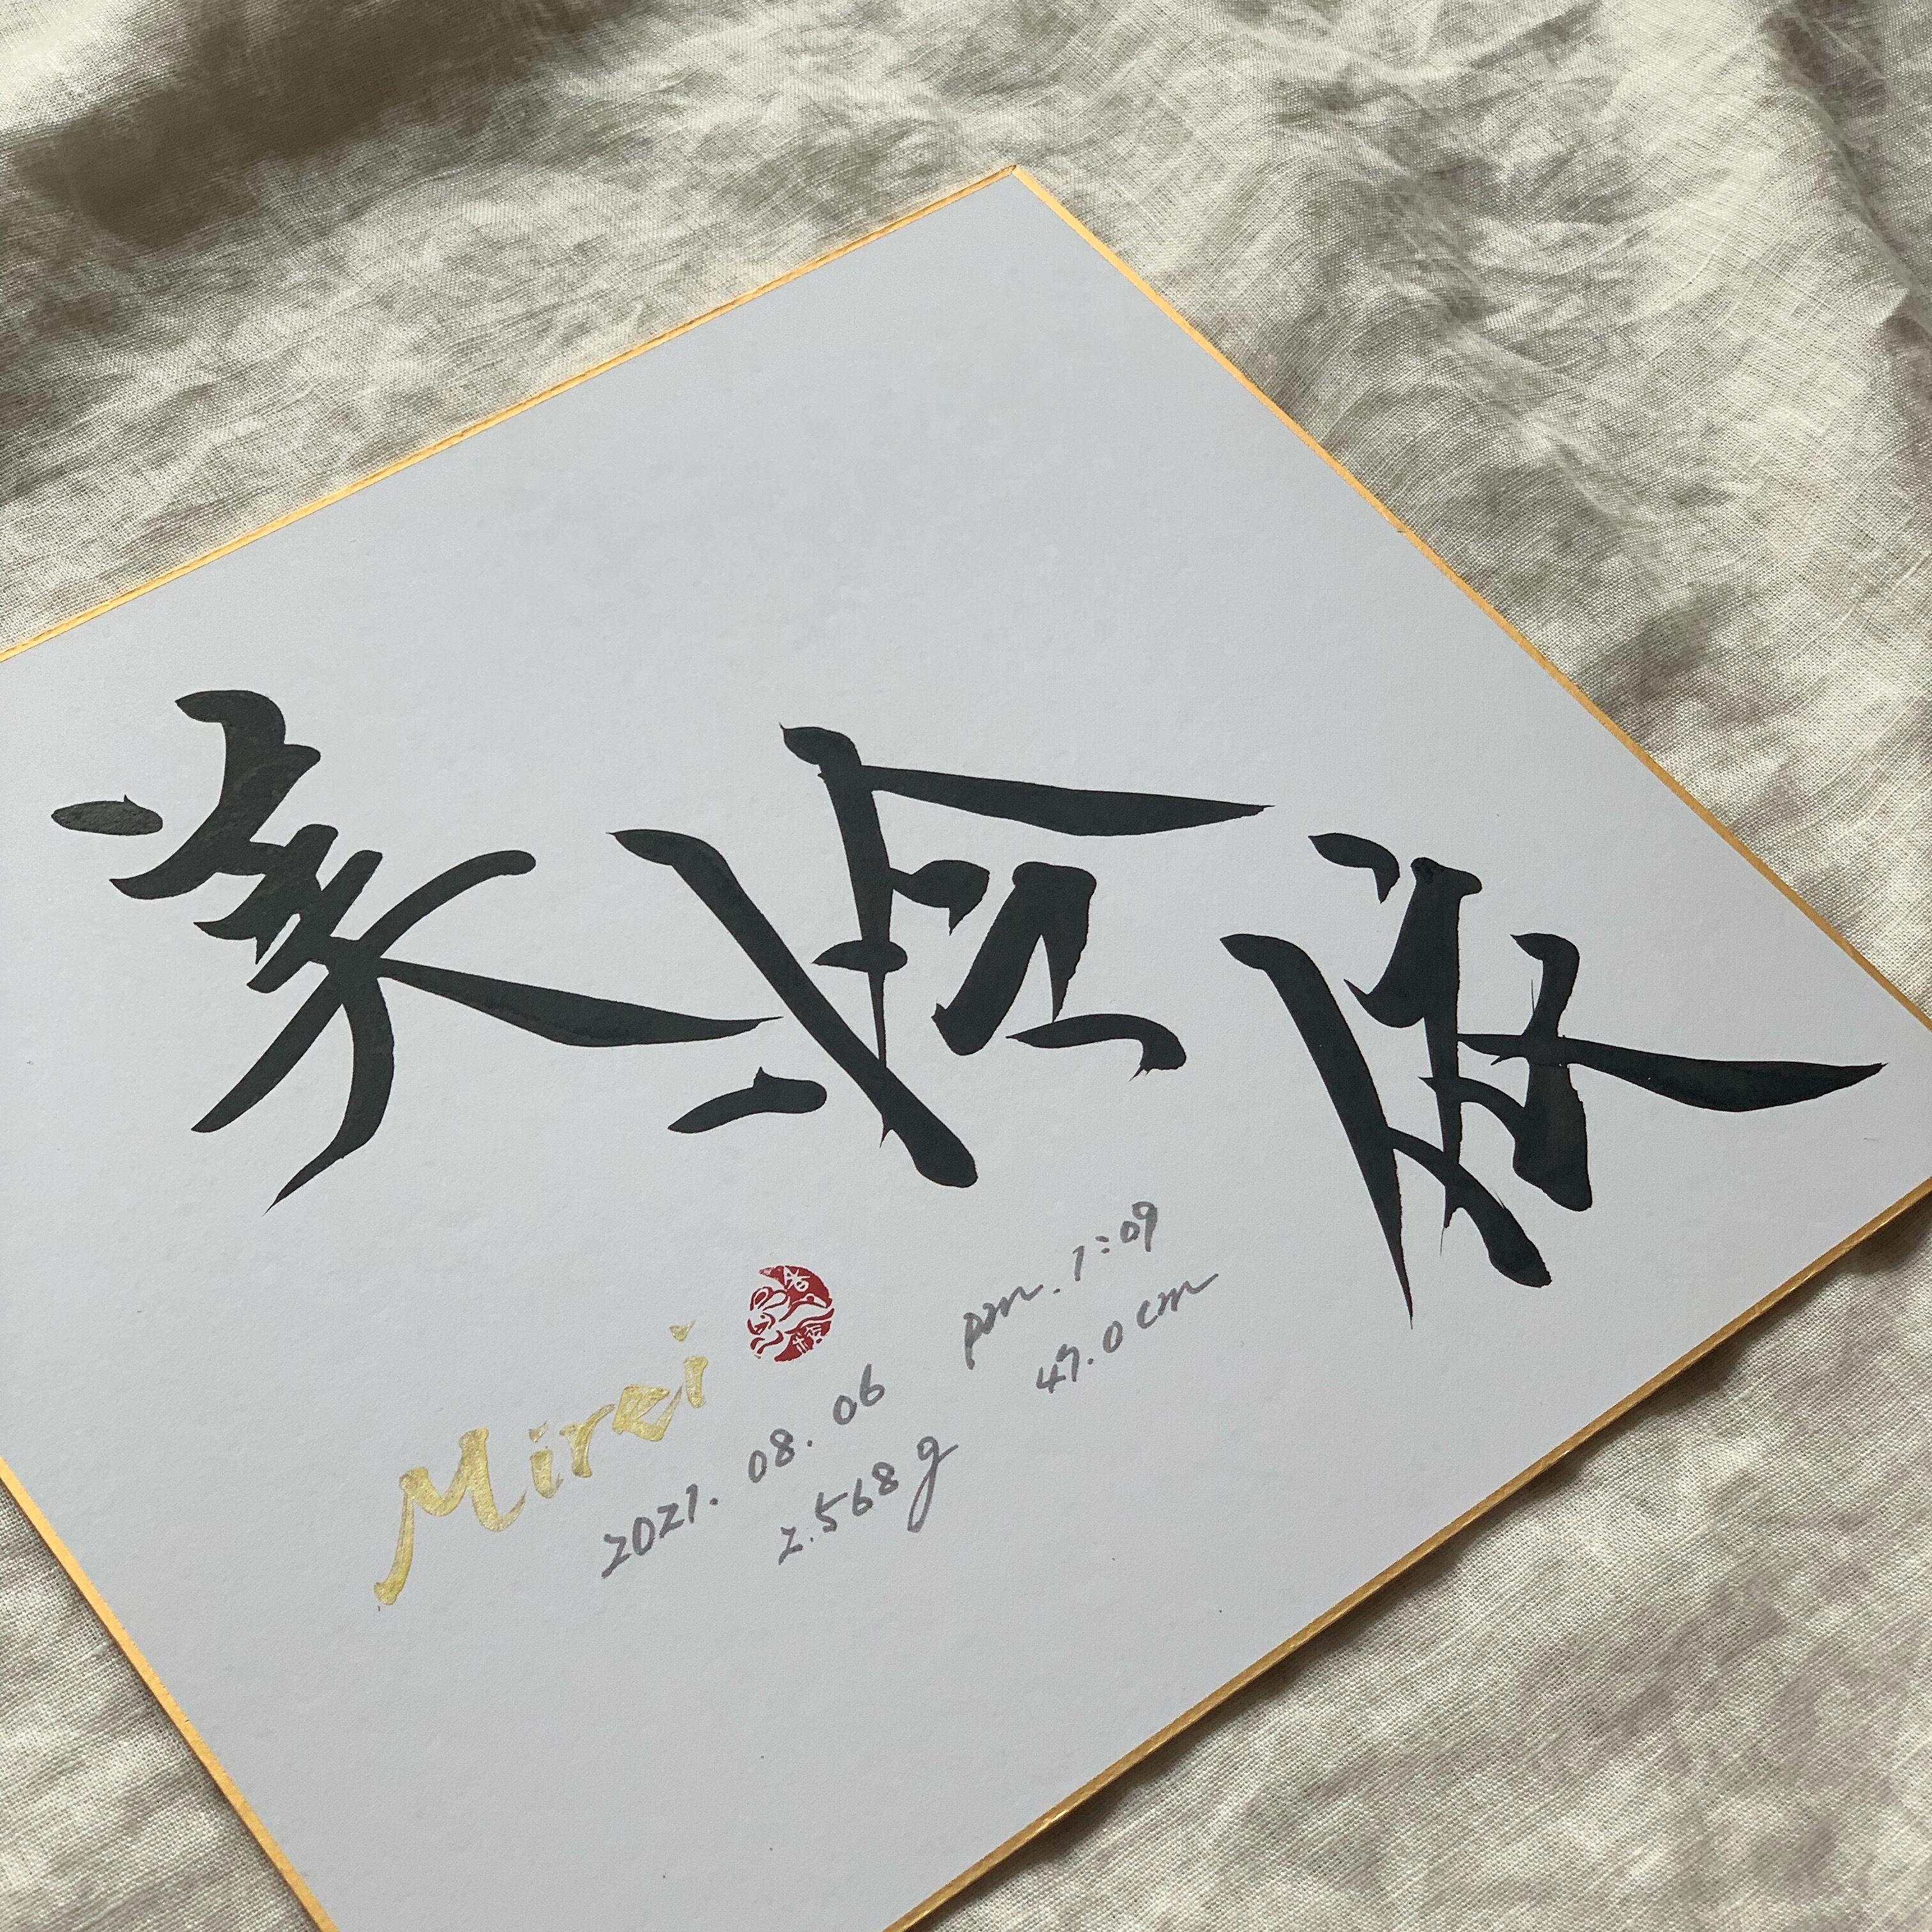 美怜依
Mirei
2021. 08. 06 pm. 1:09
2.568g 47.0cm